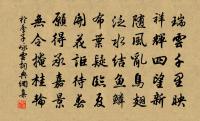 瑞雲千里映
祥輝四望新
隨風亂鳥翅
泛水結魚鱗
布葉疑臨夏
開花詎待春
願得承嘉景
無令掩桂輪
於季子詠雲詞典網集